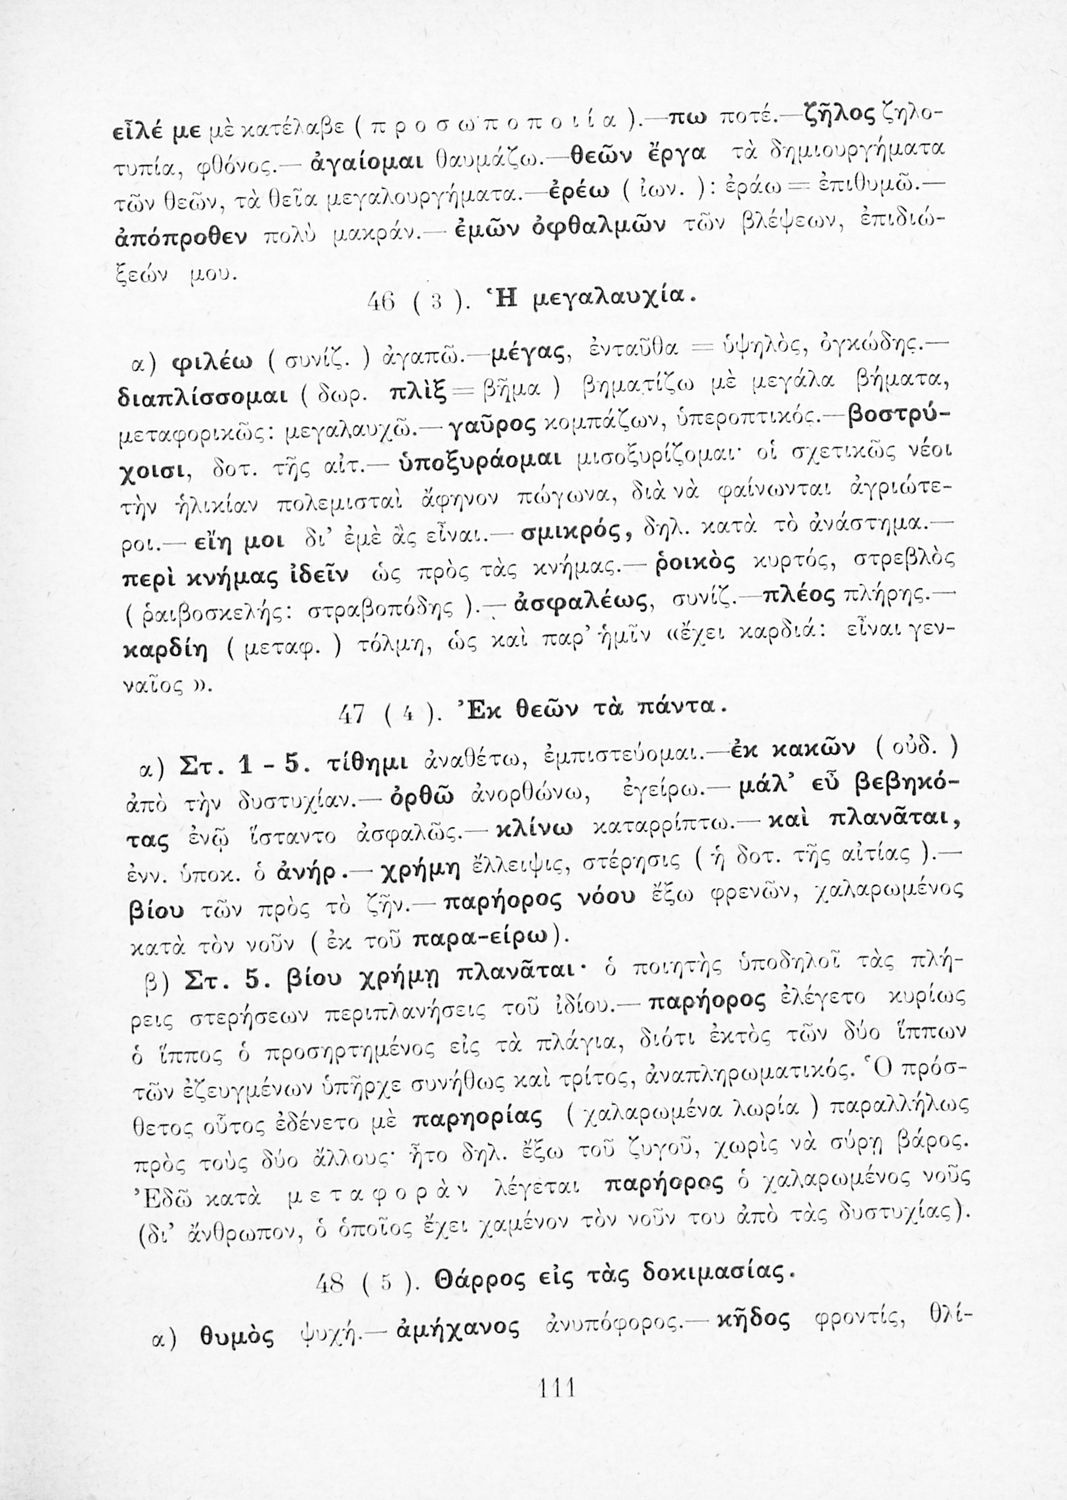 εἷλέ με μὲ κατέλαβε ( π ρ ο σ ω π ο π ο ι ί α ).—πω ποτέ.—ζῆλος ζηλο-
τυπία, φθόνος.— ἀγαίομαι θαυμάζω.—θεῶν ἔργα τὰ δημιουργήματα
τῶν θεῶν, τὰ θεῖα μεγαλουργήματα.—ἐρέω ( ἰων. ): ἐράω = ἐπιθυμῶ.—
ἀπόπροθεν πολὺ μακράν.— ἐμῶν ὀφθαλμῶν τῶν βλέψεων, ἐπιδιώ-
ξεών μου.
46 ( 3 ). Ἡ μεγαλαυχία.
α) φιλέω ( συνίζ. ) ἀγαπῶ.—μέγας, ἐνταῦθα = ὑψηλὸς, ὀγκώδης.—
διαπλίσσομαι ( δωρ. πλὶξ = βῆμα ) βηματίζω μὲ μεγάλα βήματα,
μεταφορικῶς: μεγαλαυχῶ.— γαῦρος κομπάζων, ὑπεροπτικός.—βοστρύ-
χοισι, δοτ. τῆς αἰτ.— ὑποξυράομαι μισοξυρίζομαι· οἱ σχετικῶς νέοι
τὴν ἡλικίαν πολεμισταὶ ἄφηνον πώγωνα, διὰ νὰ φαίνωνται ἀγριώτε-
ροι.— εἴη μοι δι' ἐμὲ ἂς εἶναι.— σμικρός, δηλ. κατὰ τὸ ἀνάστημα.—
περὶ κνήμας ἰδεῖν ὡς πρὸς τὰς κνήμας.— ῥοικὸς κυρτός, στρεβλὸς
( ῥαιβοσκελής: στραβοπόδης ).— ἀσφαλέως, συνίζ.—πλέος πλήρης.—
καρδίη ( μεταφ. ) τόλμη, ὡς καὶ παρ' ἡμῖν «ἔχει καρδιά: εἶναι γεν-
ναῖος ».
47 ( 4 ). Ἐκ θεῶν τὰ πάντα.
α) Στ. 1 - 5. τίθημι ἀναθέτω, ἐμπιστεύομαι.—ἐκ κακῶν ( οὐδ. )
ἀπὸ τὴν δυστυχίαν.— ὀρθῶ ἀνορθώνω, ἐγείρω.— μάλ' εὖ βεβηκό-
τας ἐνῷ ἵσταντο ἀσφαλῶς.— κλίνω καταρρίπτω.— καὶ πλανᾶται,
ἐνν. ὑποκ. ὁ ἀνήρ.— χρήμη ἔλλειψις, στέρησις ( ἡ δοτ. τῆς αἰτίας ).—
βίου τῶν πρὸς τὸ ζῆν.— παρήορος νόου ἔξω φρενῶν, χαλαρωμένος
κατὰ τὸν νοῦν ( ἐκ τοῦ παρα-είρω ).
β) Στ. 5. βίου χρήμῃ πλανᾶται· ὁ ποιητὴς ὑποδηλοῖ τὰς πλή-
ρεις στερήσεων περιπλανήσεις τοῦ ἰδίου.— παρήορος ἐλέγετο κυρίως
ὁ ἵππος ὁ προσηρτημένος εἰς τὰ πλάγια, διότι ἐκτὸς τῶν δύο ἵππων
τῶν ἐζευγμένων ὑπῆρχε συνήθως καὶ τρίτος, ἀναπληρωματικός. Ὁ πρόσ-
θετος οὗτος ἐδένετο μὲ παρηορίας ( χαλαρωμένα λωρία ) παραλλήλως
πρὸς τοὺς δύο ἄλλους· ἦτο δηλ. ἔξω τοῦ ζυγοῦ, χωρὶς νὰ σύρῃ βάρος.
Ἐδῶ κατὰ μ ε τ α φ ο ρ ὰ ν λέγεται παρήορος ὁ χαλαρωμένος νοῦς
(δι' ἄνθρωπον, ὁ ὁποῖος ἔχει χαμένον τὸν νοῦν του ἀπὸ τὰς δυστυχίας).
48 ( 5 ). Θάρρος εἰς τὰς δοκιμασίας.
α) θυμὸς ψυχή.— ἀμήχανος ἀνυπόφορος.— κῆδος φροντίς, θλί-
111